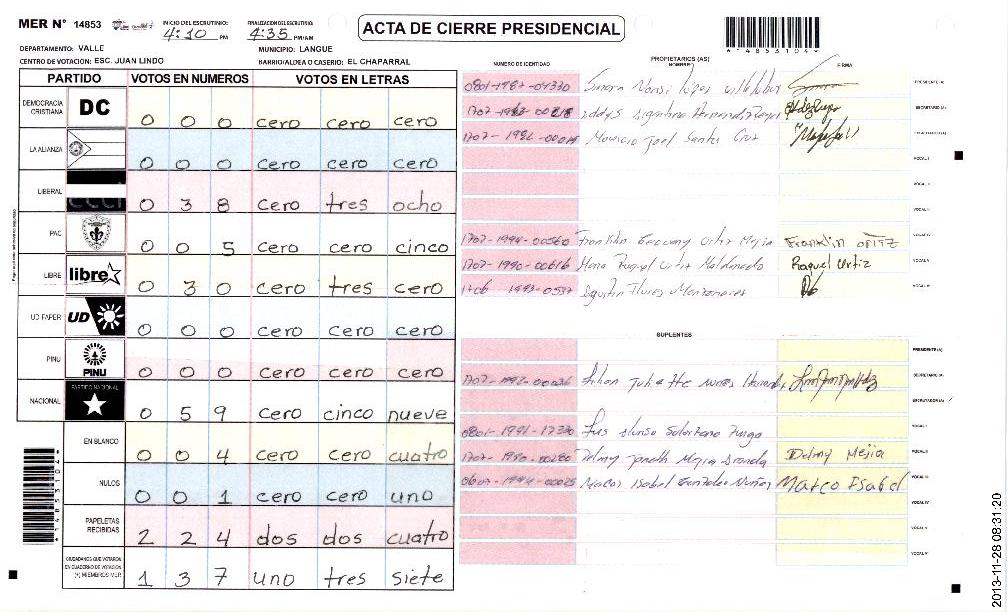 MER N° 14853
INICIO DEL ESCRUTINIO: 4:10 PM
FINALIZACION DEL ESCRUTINIO: 4:35 PM/AM
ACTA DE CIERRE PRESIDENCIAL
DEPARTAMENTO: VALLE
MUNICIPIO: LANGUE
CENTRO DE VOTACION: ESC. JUAN LINDO
BARRIO/ALDEA O CASERIO: EL CHAPARRAL
PARTIDO VOTOS EN NUMEROS VOTOS EN LETRAS
DEMOCRACIA CRISTIANA DC 0 0 0 cero cero cero
LA ALIANZA 0 0 0 cero cero cero
LIBERAL 0 3 8 cero tres ocho
PAC 0 0 5 cero cero cinco
LIBRE libre 0 3 0 cero tres cero
UD FAPER UD 0 0 0 cero cero cero
PINU PINU 0 0 0 cero cero cero
NACIONAL PARTIDO NACIONAL 0 5 9 cero cinco nueve
EN BLANCO 0 0 4 cero cero cuatro
NULOS 0 0 1 cero cero uno
PAPELETAS RECIBIDAS 2 2 4 dos dos cuatro
CIUDADANOS QUE VOTARON EN CUADERNO DE VOTACION (+) MIEMBROS MER 1 3 7 uno tres siete
PROPIETARIOS (AS)
NUMERO DE IDENTIDAD NOMBRE FIRMA
PRESIDENTE (A)
SECRETARIO (A)
Mauricio Joel Santa Cruz
ESCRUTADOR (A)
VOCAL I
VOCAL II
VOCAL III
1707-1994-00560 Franklin Ortiz Mejia Franklin ortiz VOCAL IV
1707-1990-00616 Maria Raquel Ortiz Maldonado Raquel Ortiz VOCAL V
Agustin Flores Manzanares VOCAL VI
SUPLENTES
PRESIDENTE (A)
SECRETARIO (A)
ESCRUTADOR (A)
0801-1991-17330 Luis Alonso Solorzano Zuniga VOCAL I
Delmy Mejia Delmy Mejia VOCAL II
Marcos Isabel Gonzales Nuñez Marco Isabel VOCAL III
VOCAL IV
VOCAL V
VOCAL VI
*14853104*
*14853104*
2013-11-28 08:31:20